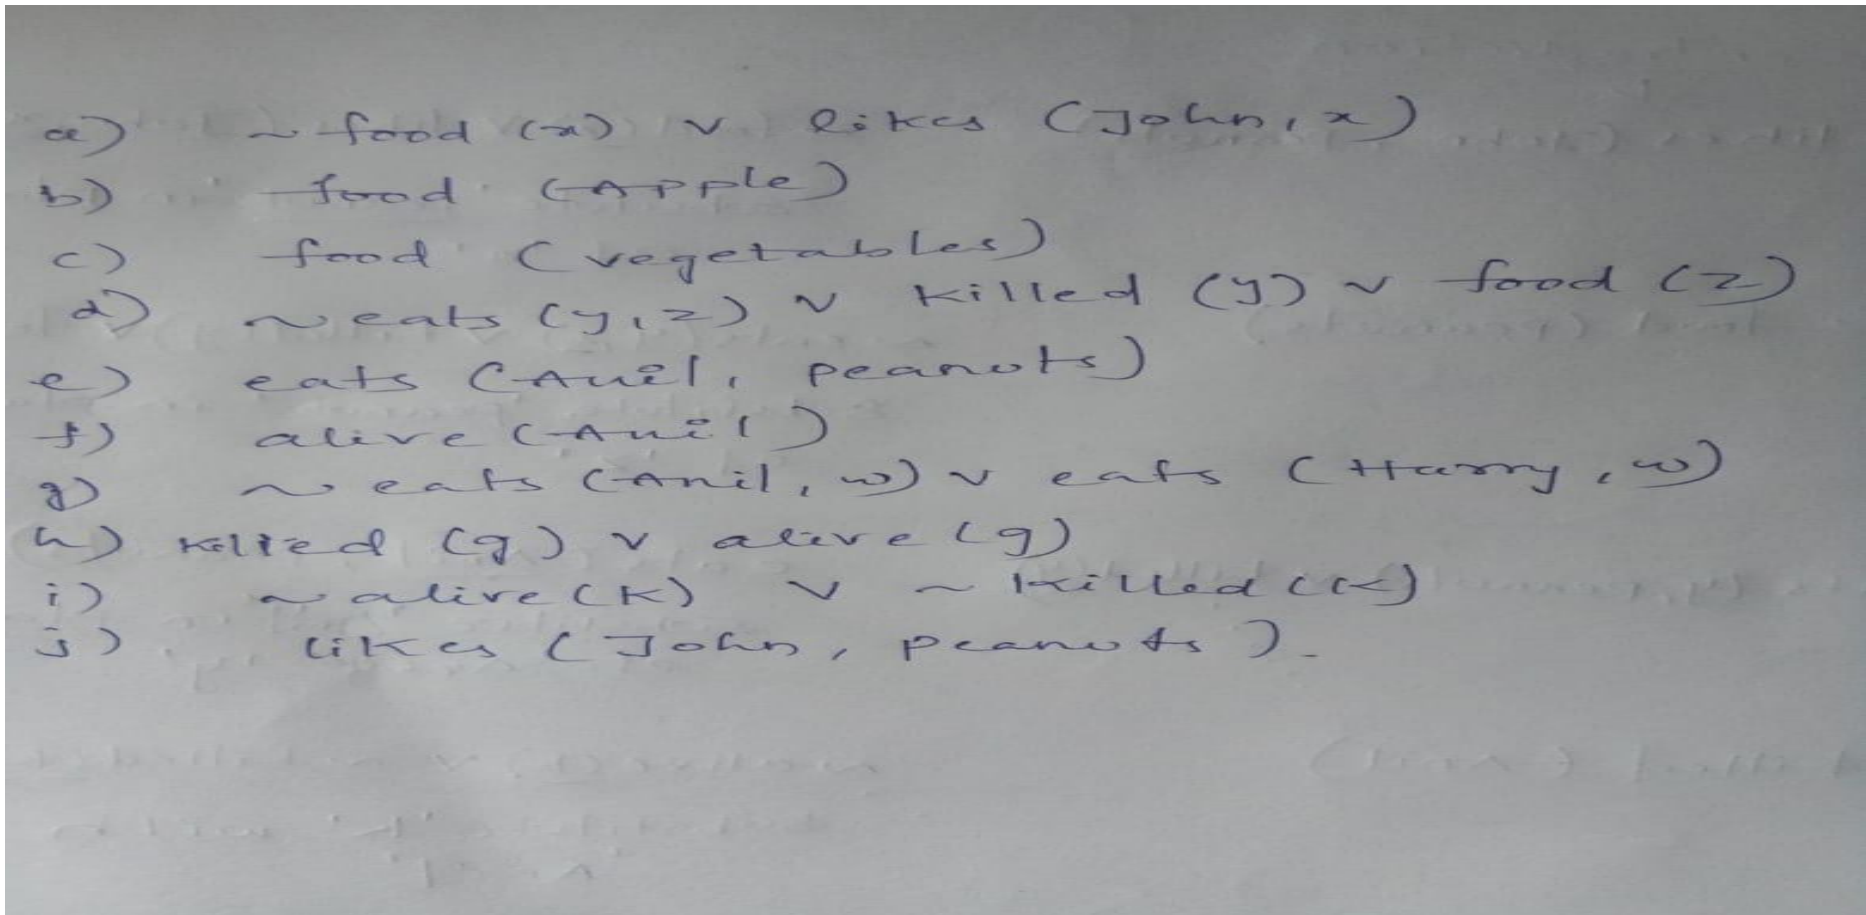 a) ~ food (x) v likes (John, x)
b) food (Apple)
c) food (vegetables)
d) ~ eats (y, z) v killed (y) v food (z)
e) eats (Anil, peanuts)
f) alive (Anil)
g) ~ eats (Anil, w) v eats (Harry, w)
h) killed (g) v alive (g)
i) ~ alive (k) v ~ killed (k)
j) likes (John, peanuts).